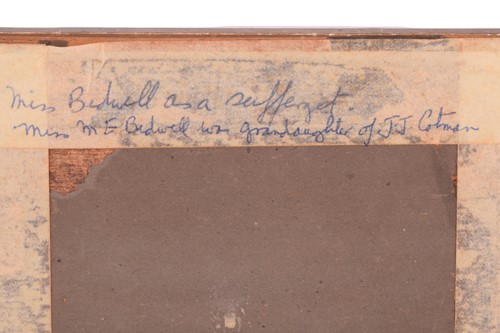 Miss Bedwell as a sufferget.
Miss M E Bedwell was grandaughter of J.J Cotman